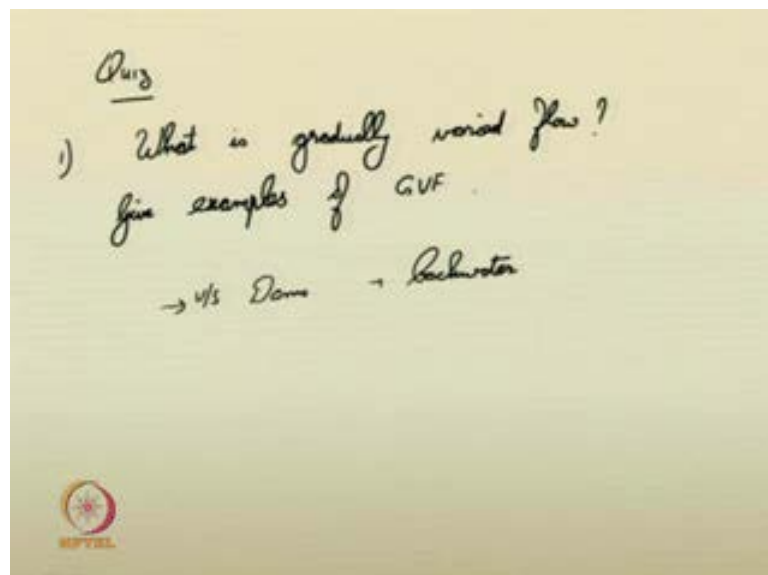 Quiz
1) What is gradually varied flow?
Give examples of GVF.
→ u/s Dams → backwater
NPTEL